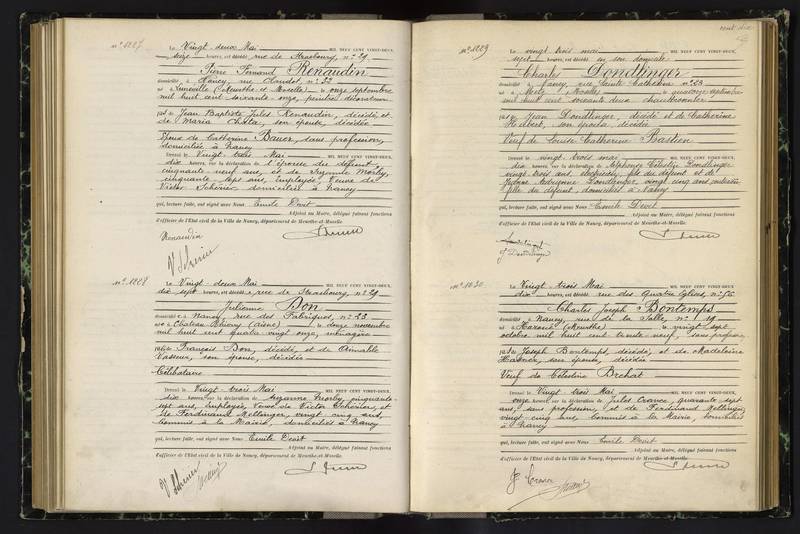 nº 1227
Le Vingt-deux Mai MIL NEUF CENT VINGT-DEUX,
seize heures, est décédé, rue de Strasbourg, nº 29
Pierre Fernand Renaudin
domicilié à Nancy, rue Claudot, nº 32
né à Lunéville (Meurthe et Moselle) le onze septembre
mil huit cent soixante-onze, peintre décorateur
fils de Jean Baptiste Jules Renaudin, décédé, et
de Maria son épouse, décédée
Epoux de Catherine Bauer, sans profession,
domiciliée à Nancy
Dressé le Vingt-trois Mai MIL NEUF CENT VINGT-DEUX,
dix heures, sur la déclaration de l'épouse du défunt,
cinquante neuf ans, et de Suzanne Morby,
cinquante sept ans, employée, Veuve de
Victor domiciliées à Nancy
qui, lecture faite, ont signé avec Nous Emile Devit
Adjoint au Maire, délégué faisant fonctions
d'officier de l'État civil de la Ville de Nancy, département de Meurthe-et-Moselle.
Renaudin
nº 1228
Le Vingt-deux Mai MIL NEUF CENT VINGT-DEUX,
dix sept heures, est décédée, rue de Strasbourg, nº 29
Julienne Bon
domiciliée à Nancy, rue des Fabriques, nº 23
née à Château-Thierry (Aisne) le douze novembre
mil huit cent quatre vingt onze, ménagère
fille de François Bon, décédé, et de Aimable
Vasseur, son épouse, décédée
Célibataire
Dressé le Vingt trois Mai MIL NEUF CENT VINGT-DEUX,
dix heures, sur la déclaration de Suzanne Morby, cinquante-
sept ans, employée, Veuve de Victor et
de Ferdinand Mellinger, vingt cinq ans,
commis à la Mairie, domiciliés à Nancy
qui, lecture faite, ont signé avec Nous Emile Devit
Adjoint au Maire, délégué faisant fonctions
d'officier de l'État civil de la Ville de Nancy, département de Meurthe-et-Moselle.
cent dix
nº 1229
Le vingt trois mai MIL NEUF CENT VINGT-DEUX,
sept heures, est décédé en son domicile
Charles Dondlinger
domicilié à Nancy, rue Sainte Catherine nº 23
né à Metz, Moselle le quatorze septembre
mil huit cent soixante deux
fils de Jean Dondlinger, décédé et de Catherine
Hebert, son épouse décédée
Veuf de Louise Catherine Bastien
Dressé le vingt trois mai MIL NEUF CENT VINGT-DEUX,
dix heures, sur la déclaration de Alphonse Célestin Dondlinger
vingt trois ans, fils du défunt et de
Dondlinger, vingt cinq ans
fille du défunt, domiciliés à Nancy
qui, lecture faite, ont signé avec Nous Emile Devit
Adjoint au Maire, délégué faisant fonctions
d'officier de l'État civil de la Ville de Nancy, département de Meurthe-et-Moselle.
nº 1230
Le Vingt-trois Mai MIL NEUF CENT VINGT-DEUX,
dix heures, est décédé rue des Quatre Eglises, nº 56
Charles Joseph Bontemps
domicilié à Nancy, rue de la Salle, nº 19
né à Haroué (Meurthe) le vingt sept
octobre mil huit cent trente neuf, sans profession,
fils de Joseph Bontemps, décédé, et de Madeleine
son épouse, décédée
Veuf de Célestine Brechat
Dressé le Vingt trois Mai MIL NEUF CENT VINGT-DEUX,
onze heures, sur la déclaration de Jules quarante sept
ans, sans profession, et de Ferdinand Mellinger
vingt-cinq ans, commis à la Mairie, domiciliés
à Nancy
qui, lecture faite, ont signé avec Nous Emile Devit
Adjoint au Maire, délégué faisant fonctions
d'officier de l'État civil de la Ville de Nancy, département de Meurthe-et-Moselle.